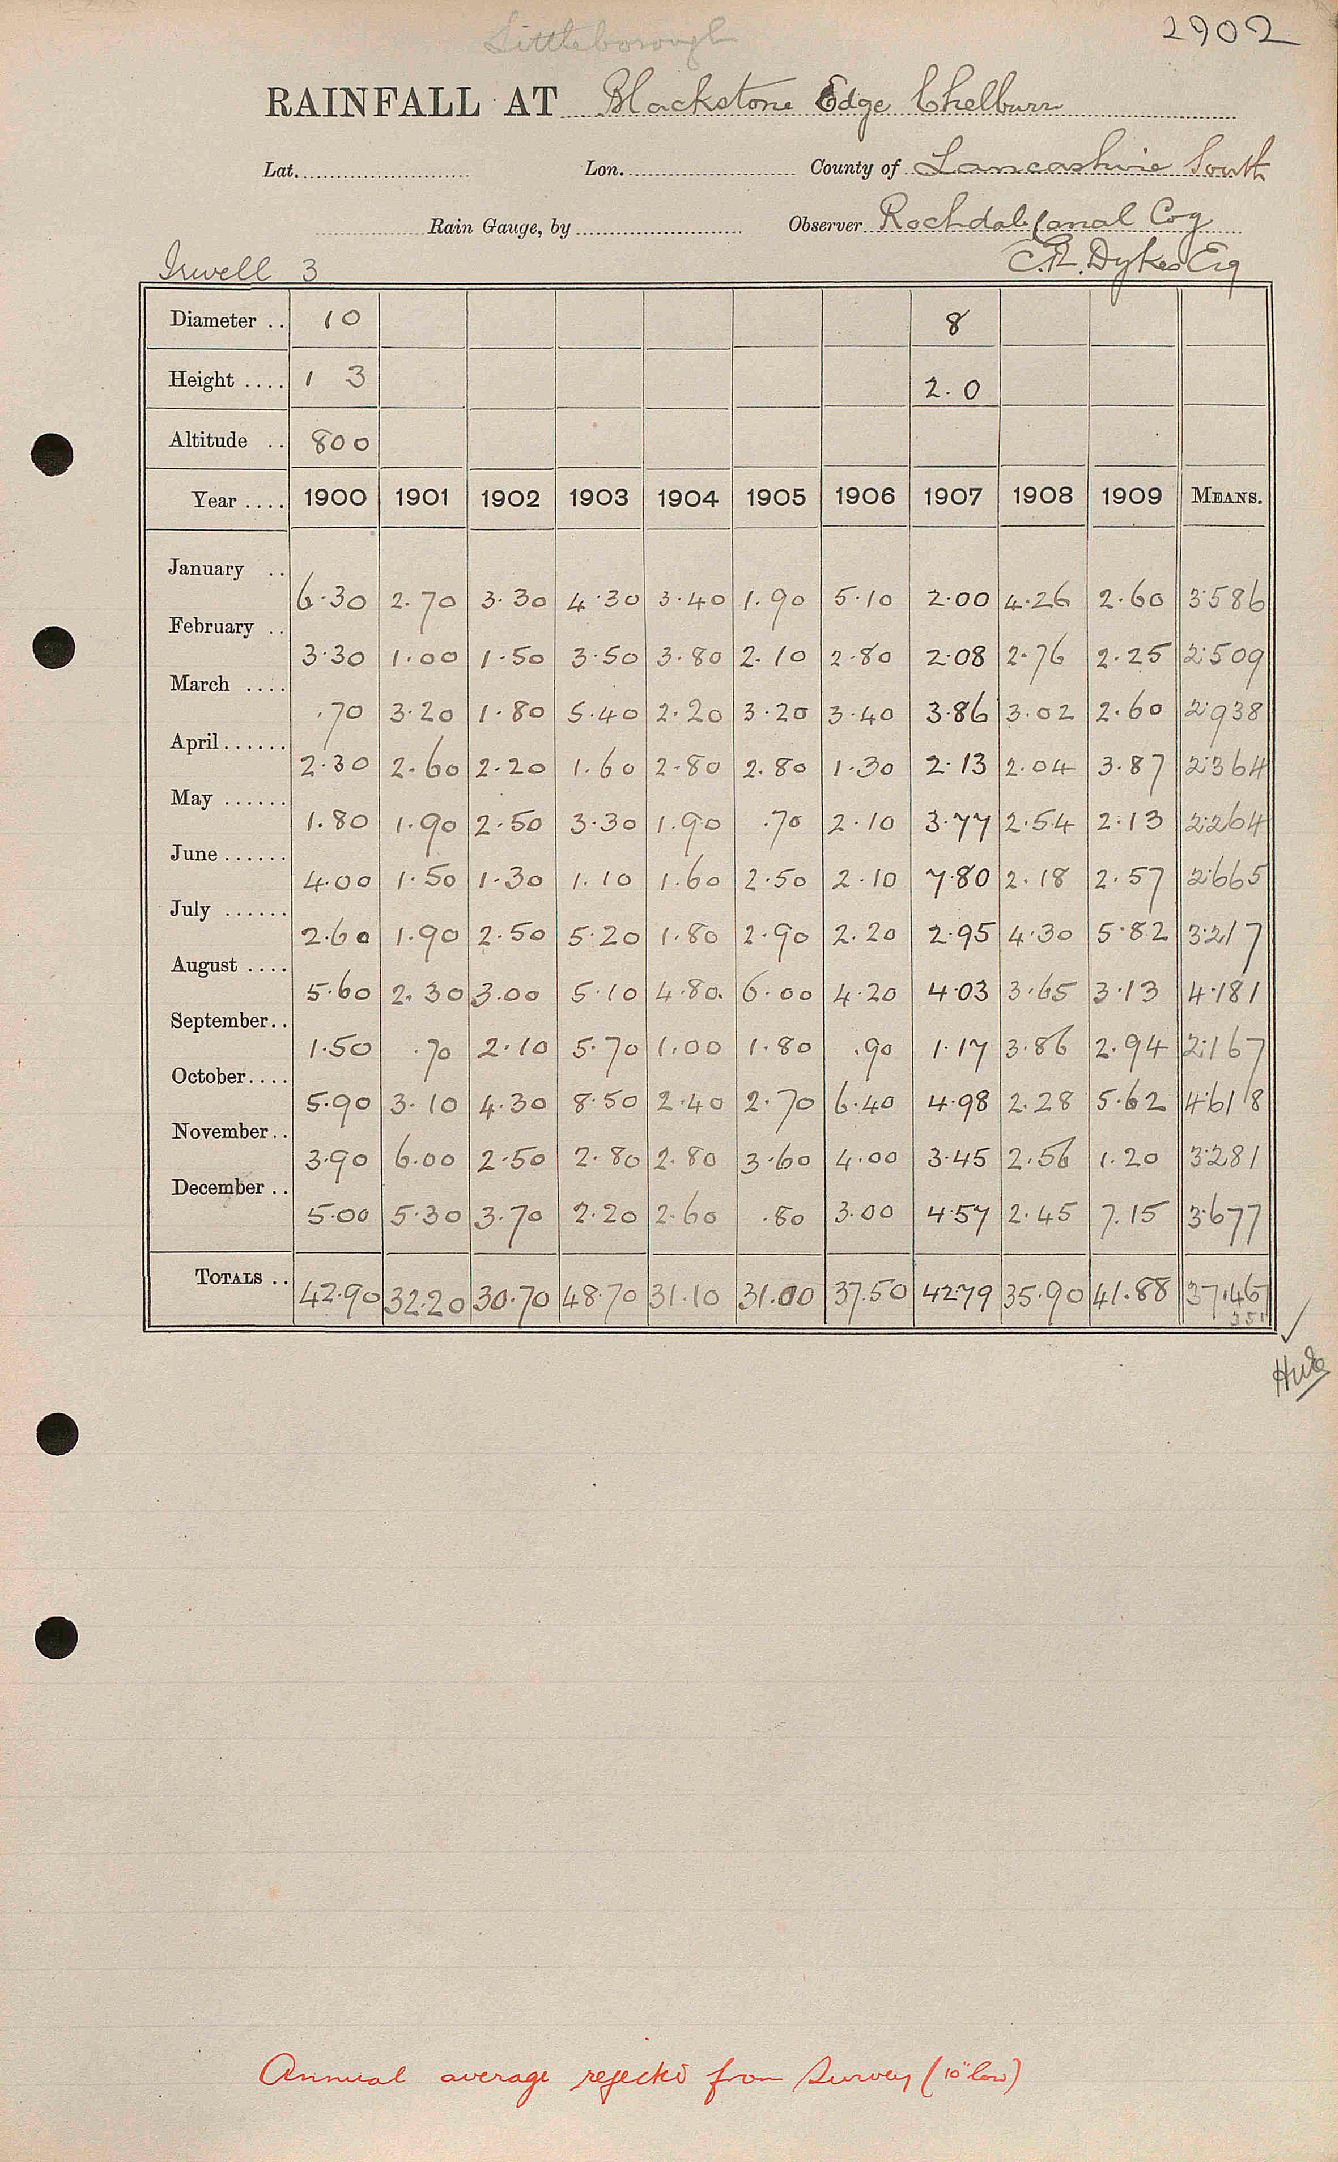 Littleborough
2902
RAINFALL AT Blackstone Edge Chelburn
Lat. Lon. County of Lancashire South
Rain Gauge, by Observer Rochdale Canal Coy
C.R. Dykes Esq
Irwell 3
Diameter .. 10 8
Height .... 1 3 2.0
Altitude .. 800
Year .... 1900 1901 1902 1903 1904 1905 1906 1907 1908 1909 MEANS.
January .. 6.30 2.70 3.30 4.30 3.40 1.90 5.10 2.00 4.26 2.60 3.586
February .. 3.30 1.00 1.50 3.50 3.80 2.10 2.80 2.08 2.76 2.25 2.509
March .... .70 3.20 1.80 5.40 2.20 3.20 3.40 3.86 3.02 2.60 2.938
April...... 2.30 2.60 2.20 1.60 2.80 2.80 1.30 2.13 2.04 3.87 2.364
May ...... 1.80 1.90 2.50 3.30 1.90 .70 2.10 3.77 2.54 2.13 2.264
June...... 4.00 1.50 1.30 1.10 1.60 2.50 2.10 7.80 2.18 2.57 2.665
July ...... 2.60 1.90 2.50 5.20 1.80 2.90 2.20 2.95 4.30 5.82 3.217
August .... 5.60 2.30 3.00 5.10 4.80. 6.00 4.20 4.03 3.65 3.13 4.181
September.. 1.50 .70 2.10 5.70 1.00 1.80 .90 1.17 3.86 2.94 2.167
October.... 5.90 3.10 4.30 8.50 2.40 2.70 6.40 4.98 2.28 5.62 4.618
November.. 3.90 6.00 2.50 2.80 2.80 3.60 4.00 3.45 2.56 1.20 3.281
December .. 5.00 5.30 3.70 2.20 2.60 .80 3.00 4.57 2.45 7.15 3.677
TOTALS .. 42.90 32.20 30.70 48.70 31.10 31.00 37.50 42.79 35.90 41.88 37.46
Annual average rejected from Survey (10" low)